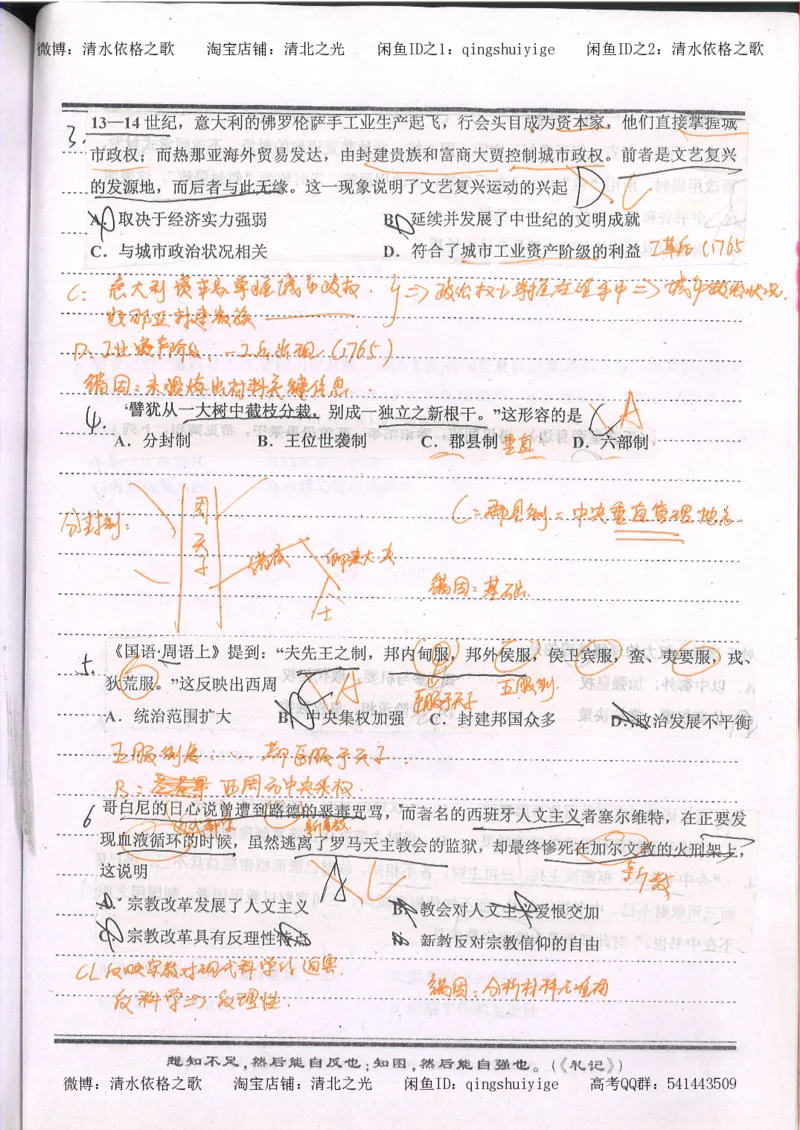 微博：清水依格之歌 淘宝店铺：清北之光 闲鱼ID之1：qingshuiyige 闲鱼ID之2：清水依格之歌
3. 13—14世纪，意大利的佛罗伦萨手工业生产起飞，行会头目成为资本家，他们直接掌握城
市政权；而热那亚海外贸易发达，由封建贵族和富商大贾控制城市政权。前者是文艺复兴
的发源地，而后者与此无缘。这一现象说明了文艺复兴运动的兴起 D C
A. 取决于经济实力强弱 B. 延续并发展了中世纪的文明成就
C. 与城市政治状况相关 D. 符合了城市工业资产阶级的利益 工革后（1765
C：意大利资本家掌握城市政权. 政治权力掌握在 城市政治状况.
D：工业资产阶级 出现（1765）
错因：未提炼出材料关键信息
4. “譬犹从一大树中截枝分栽，别成一独立之新根干。”这形容的是 C A
A. 分封制 B. 王位世袭制 C. 郡县制 垂直 D. 六部制
分封制：
周天子
诸侯 卿大夫
士
C：郡县制=中央垂直管理地方.
错因：基础.
5. 《国语·周语上》提到：“夫先王之制，邦内甸服，邦外侯服，侯卫宾服，蛮、夷要服，戎、
狄荒服。”这反映出西周 B A 五服制.
A. 统治范围扩大 B. 中央集权加强 C. 封建邦国众多 D. 政治发展不平衡
五服制度：……都臣服于天子.
B：西周无中央集权.
6 哥白尼的日心说曾遭到路德的恶毒咒骂，而著名的西班牙人文主义者塞尔维特，在正要发
新教
现血液循环的时候，虽然逃离了罗马天主教会的监狱，却最终惨死在加尔文教的火刑架上，
新教
这说明 A C
A. 宗教改革发展了人文主义 B. 教会对人文主义爱恨交加
C. 宗教改革具有反理性特点 D. 新教反对宗教信仰的自由
C反映宗教对现代科学的迫害.
反科学⇒反理性.
错因：分析材料不准确
想知不足，然后能自反也；知困，然后能自强也。（《礼记》）
微博：清水依格之歌 淘宝店铺：清北之光 闲鱼ID：qingshuiyige 高考QQ群：541443509